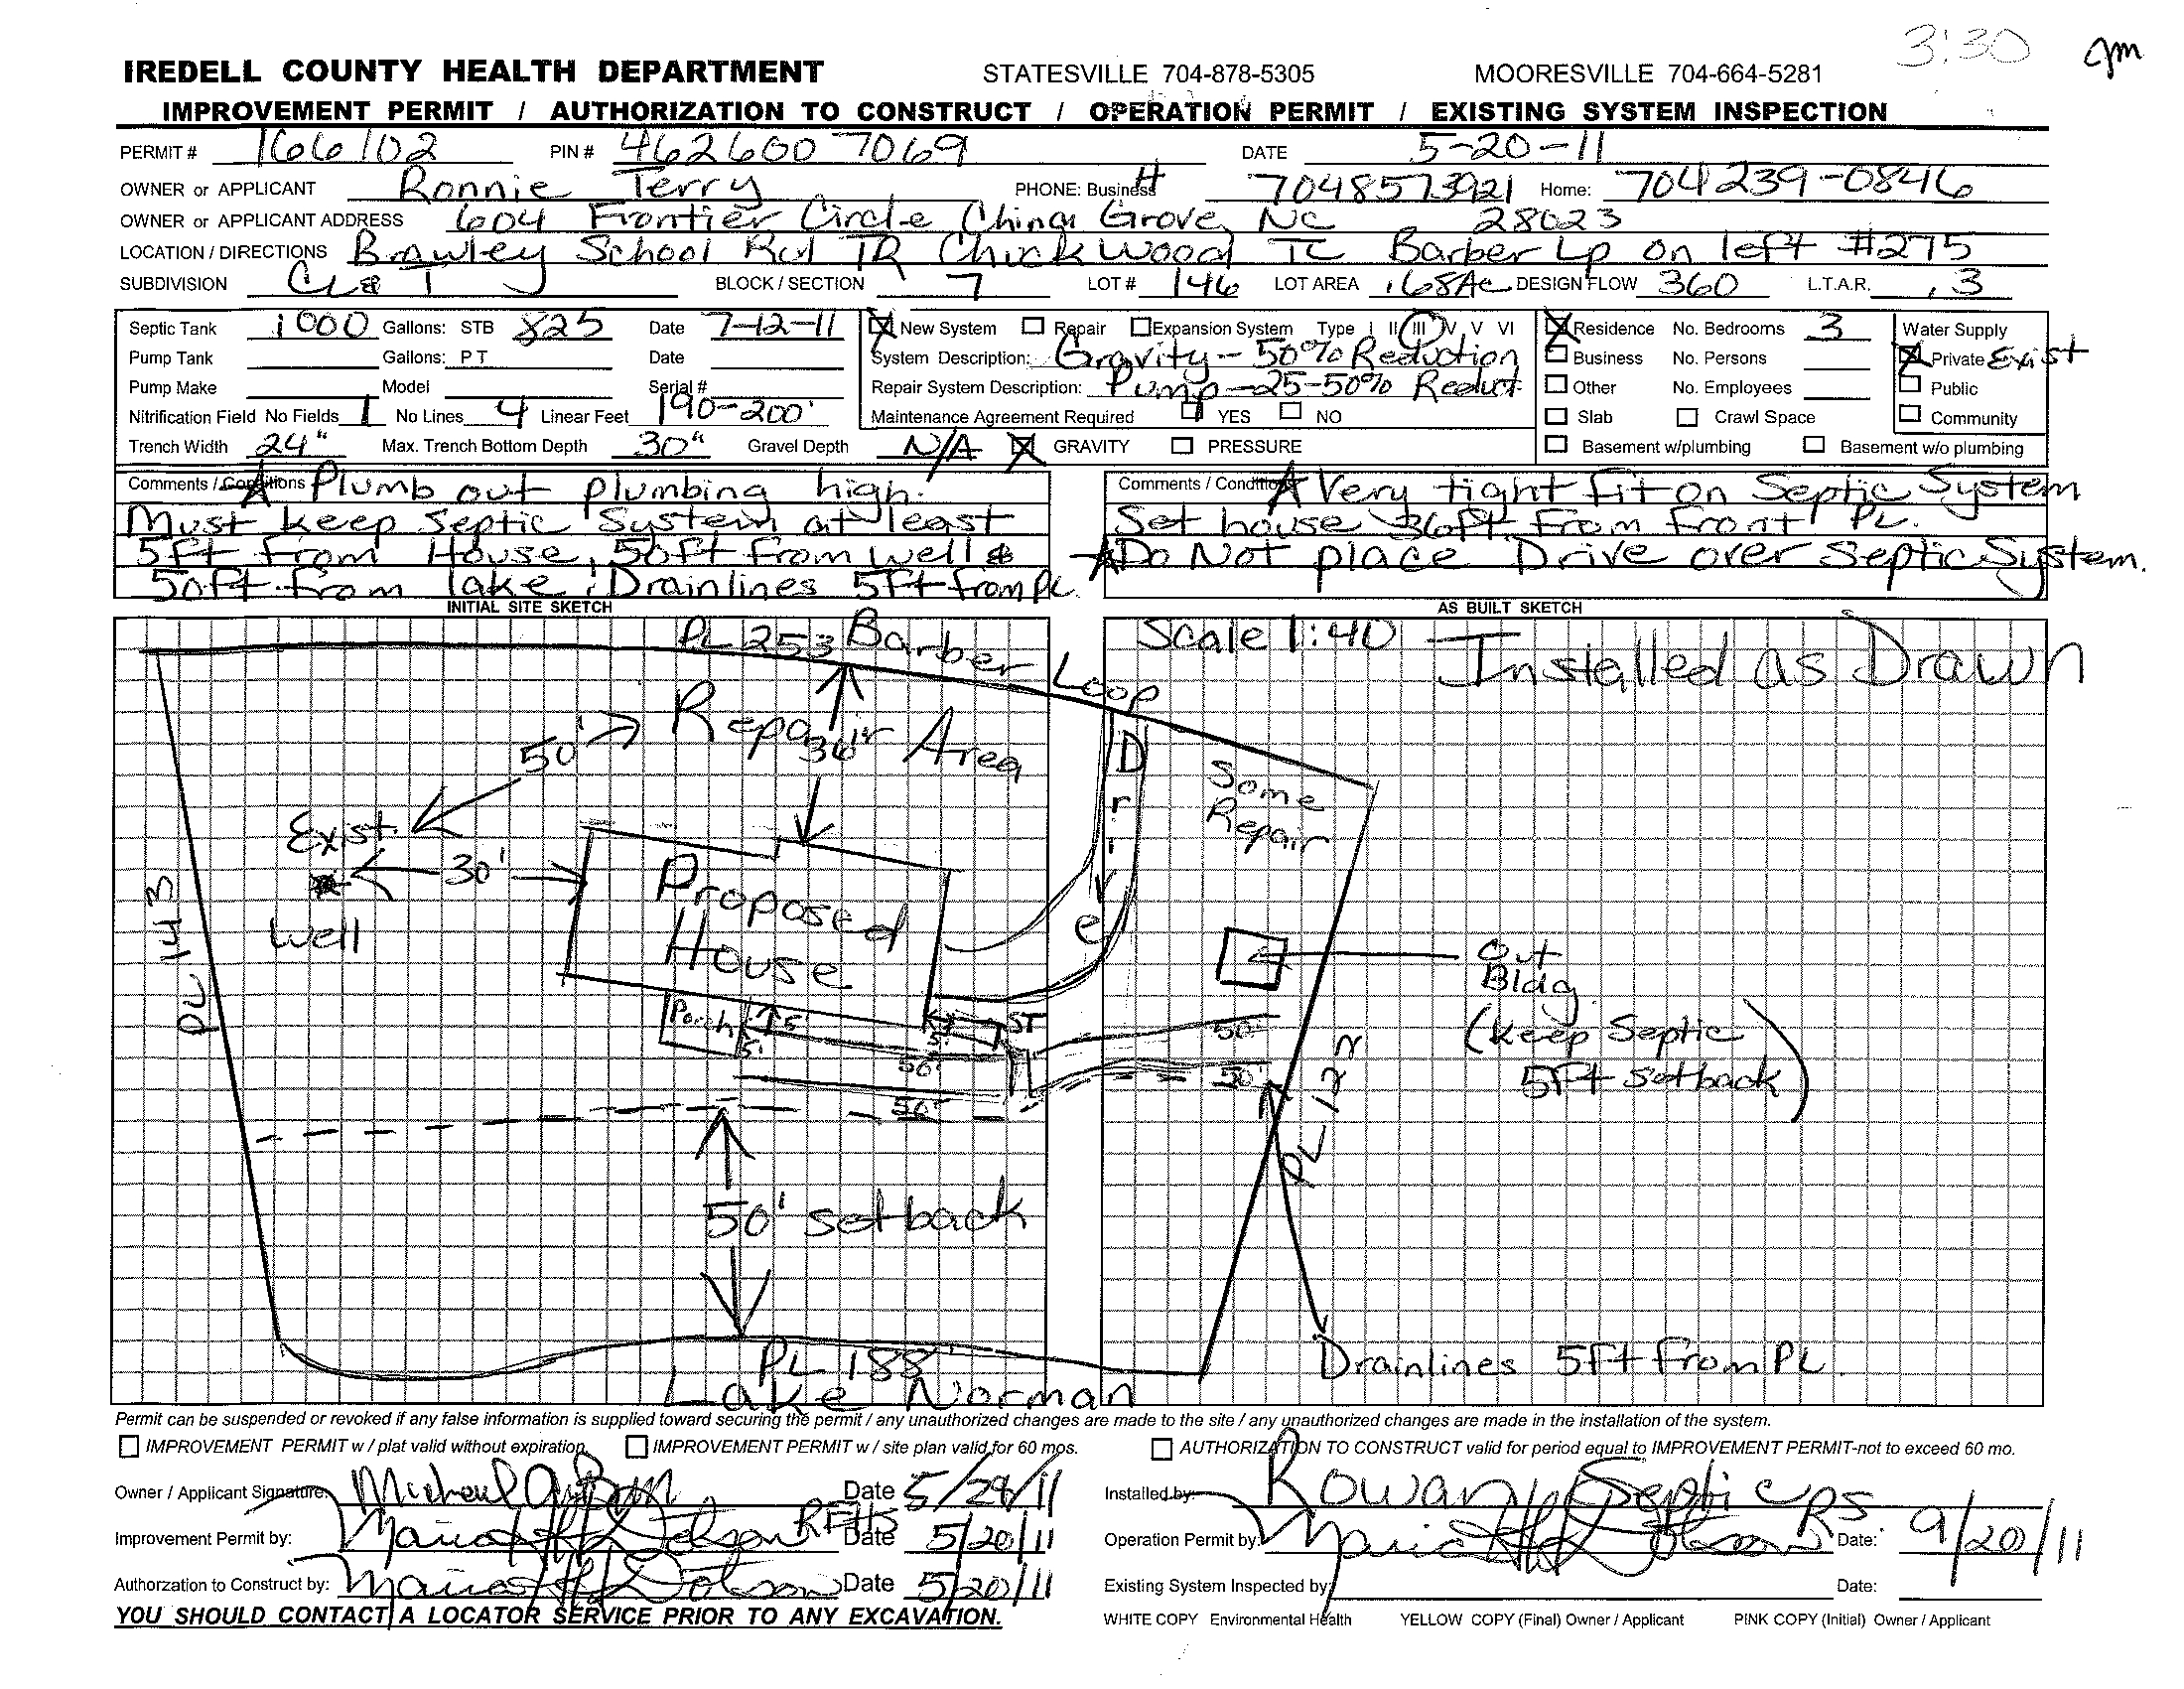 3:30 Jm
IREDELL COUNTY HEALTH DEPARTMENT STATESVILLE 704-878-5305 MOORESVILLE 704-664-5281
IMPROVEMENT PERMIT / AUTHORIZATION TO CONSTRUCT / OPERATION PERMIT / EXISTING SYSTEM INSPECTION
PERMIT # 166102 PIN # 4626007069 DATE 5-20-11
OWNER or APPLICANT Ronnie Terry PHONE: Business H 7048573921 Home: 704 239-0846
OWNER or APPLICANT ADDRESS 604 Frontier Circle China Grove, NC 28023
LOCATION / DIRECTIONS Brawley School Rd TR Chuckwood TL Barber Lp on left #275
SUBDIVISION BLOCK / SECTION 7 LOT # 146 LOT AREA .68Ac DESIGN FLOW 360 L.T.A.R. .3
Septic Tank 1000 Gallons: STB 825 Date 7-12-11
Pump Tank Gallons: PT Date
Pump Make Model Serial #
Nitrification Field No Fields 1 No Lines 4 Linear Feet 190-200'
Trench Width 24" Max. Trench Bottom Depth 30" Gravel Depth N/A GRAVITY PRESSURE
New System Repair Expansion System Type I II III IV V VI
System Description: Gravity - 50% Reduction
Repair System Description: Pump - 25-50% Reduct.
Maintenance Agreement Required YES NO
Residence No. Bedrooms 3
Business No. Persons
Other No. Employees
Slab Crawl Space
Basement w/plumbing Basement w/o plumbing
Water Supply
Private Exist
Public
Community
Comments / Conditions Plumb out plumbing high.
Must keep septic system at least
5Ft from House, 50ft from well &
50ft from lake, Drainlines 5Ft from PL.
Comments / Conditions Very tight fit on Septic System
Set house 36ft from front PL.
Do Not place Drive over Septic System.
INITIAL SITE SKETCH AS BUILT SKETCH
PL 253 Barber Loop
Scale 1:40 Installed as Drawn
50' Repair Area
36'
Drive
Some
Repair
Exist.
Well
30'
Proposed
House
PL 143
Porch 5' 5' 5' ST
50'
50'
50'
50'
Out
Bldg
(Keep Septic
5Ft setback)
PL 122
50' setback
PL 188'
Lake Norman
Drainlines 5Ft from PL.
Permit can be suspended or revoked if any false information is supplied toward securing the permit / any unauthorized changes are made to the site / any unauthorized changes are made in the installation of the system.
IMPROVEMENT PERMIT w / plat valid without expiration. IMPROVEMENT PERMIT w / site plan valid for 60 mos. AUTHORIZATION TO CONSTRUCT valid for period equal to IMPROVEMENT PERMIT-not to exceed 60 mo.
Owner / Applicant Signature: Michael Date 5/29/11
Improvement Permit by: Date 5/20/11
Authorzation to Construct by: Date 5/20/11
Installed by: Rowan Septic
Operation Permit by: RS Date: 9/20/11
Existing System Inspected by: Date:
YOU SHOULD CONTACT A LOCATOR SERVICE PRIOR TO ANY EXCAVATION.
WHITE COPY Environmental Health YELLOW COPY (Final) Owner / Applicant PINK COPY (Initial) Owner / Applicant